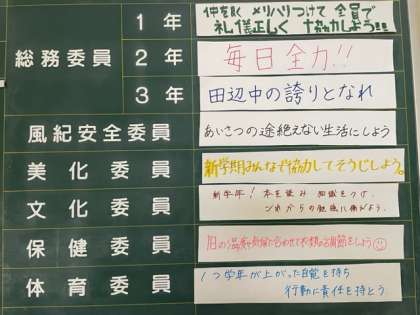 総務委員
1年
仲を良く メリハリつけて 全員で
礼儀正しく 協力しよう!!!
2年
毎日全力!!
3年
田辺中の誇りとなれ
風紀安全委員
あいさつの途絶えない生活にしよう
美化委員
新学期みんなで協力してそうじしよう。
文化委員
新学年! 本を読み 知識をつけ、
これからの勉強に
保健委員
日の温度や気候に合わせて衣類の調節をしよう
体育委員
1つ学年が上がった自覚を持ち
行動に責任を持とう